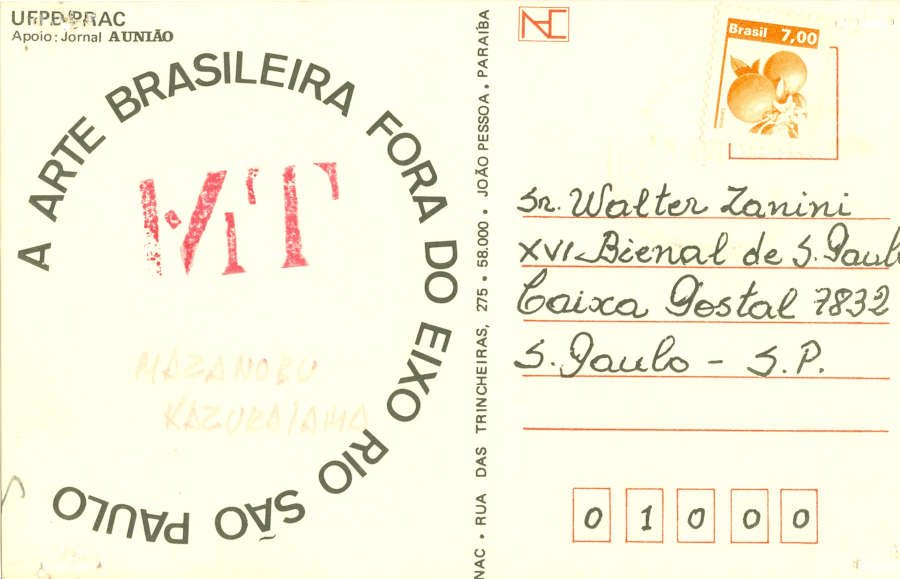 UFPB-PRAC
Apoio: Jornal A UNIÃO
A ARTE BRASILEIRA FORA DO EIXO RIO SÃO PAULO
MT
NAC • RUA DAS TRINCHEIRAS, 275 • 58.000 • JOÃO PESSOA • PARAÍBA
NAC
Brasil 7,00
Sr. Walter Zanini
XVI Bienal de S. Paulo
Caixa Postal 7832
S. Paulo - S.P.
0 1 0 0 0